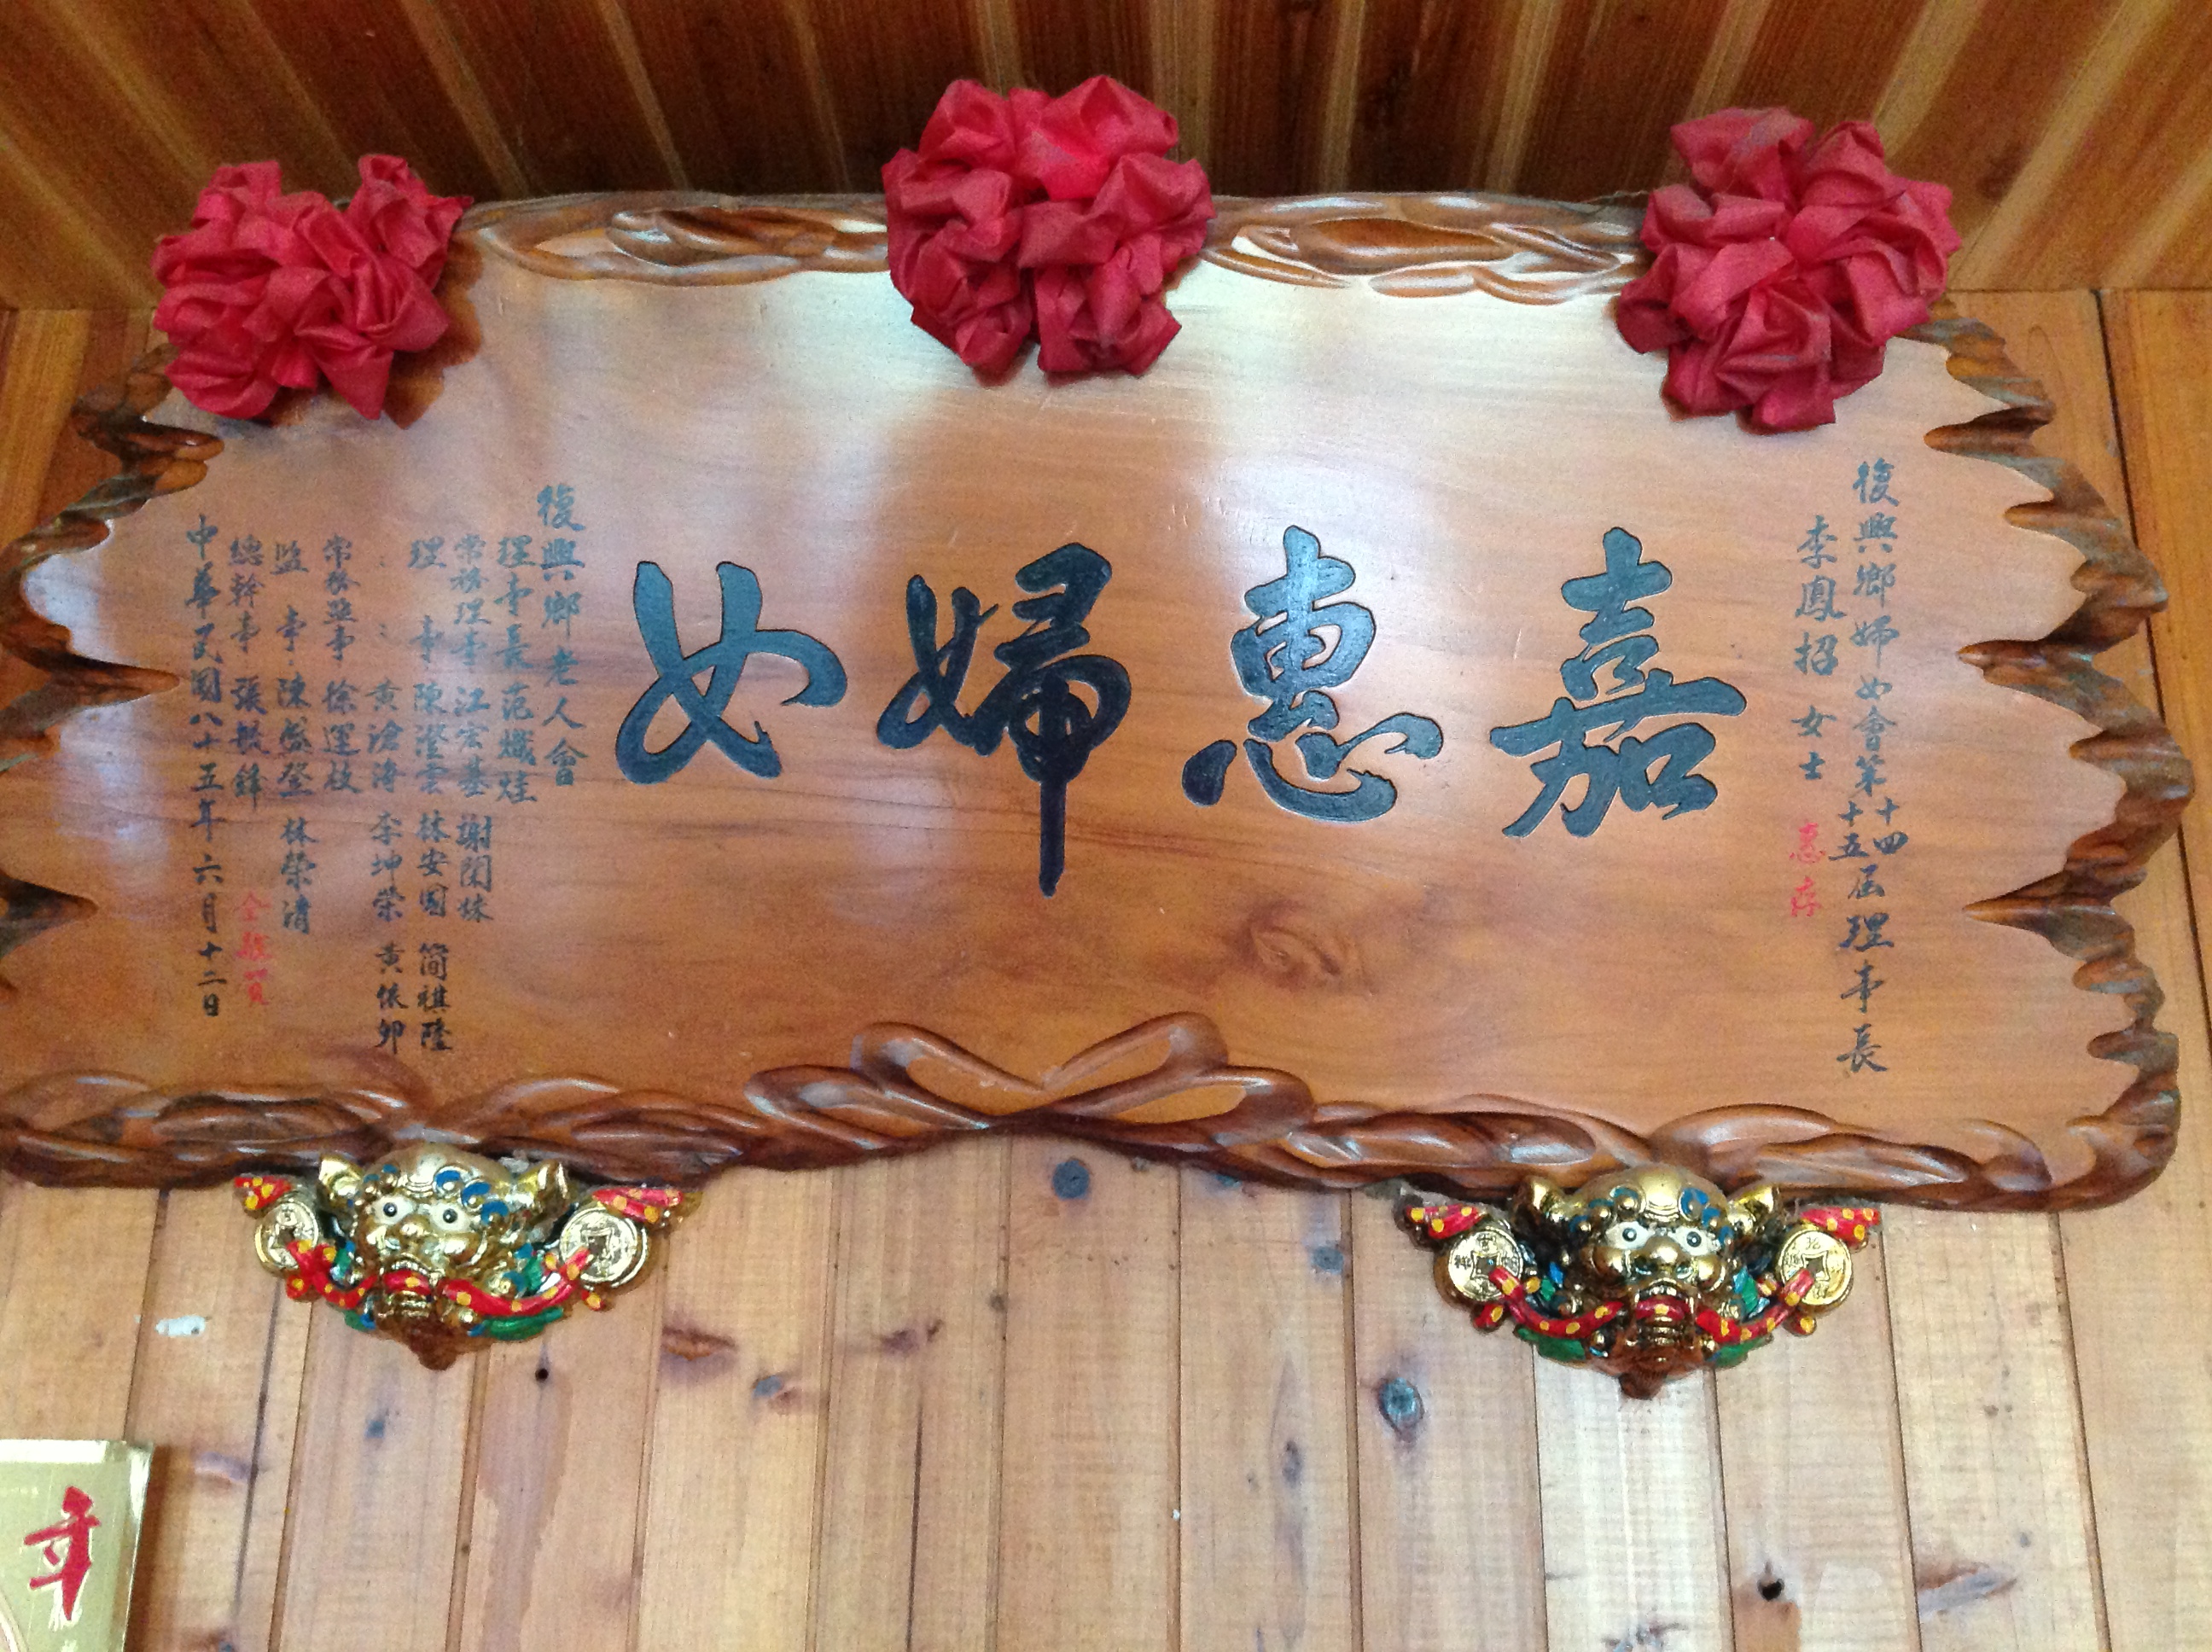 復興鄉婦女會第十四十五屆理事長
李鳳招女士惠存
嘉惠婦女
復興鄉老人會
理事長范熾珪
常務理事江宏基 謝闰妹
理事陳澄雲 林安國 簡祺隆
黃滄海 李坤榮 黃依卿
常務監事徐運枝
監事陳盛登 林榮清
總幹事張毅鋒 仝敬賀
中華民國八十五年六月十二日
年